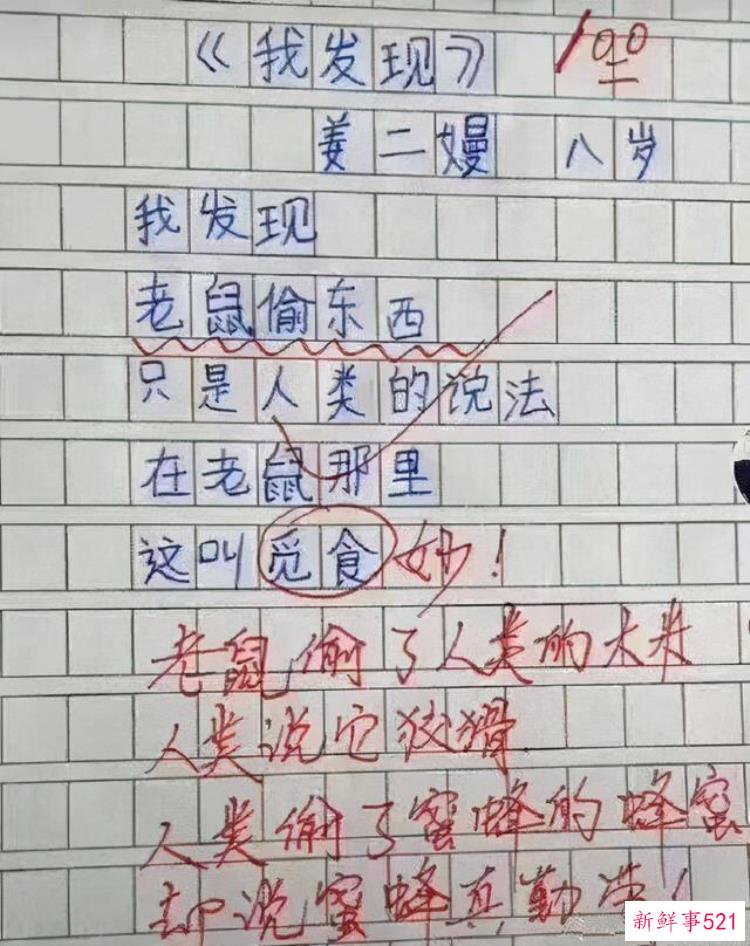 《我发现》 100
姜二嫚 八岁
我发现
老鼠偷东西
只是人类的说法
在老鼠那里
这叫觅食 妙！
老鼠偷了人类的大米
人类说它狡猾
人类偷了蜜蜂的蜂蜜
却说蜜蜂真勤劳！
新鲜事521